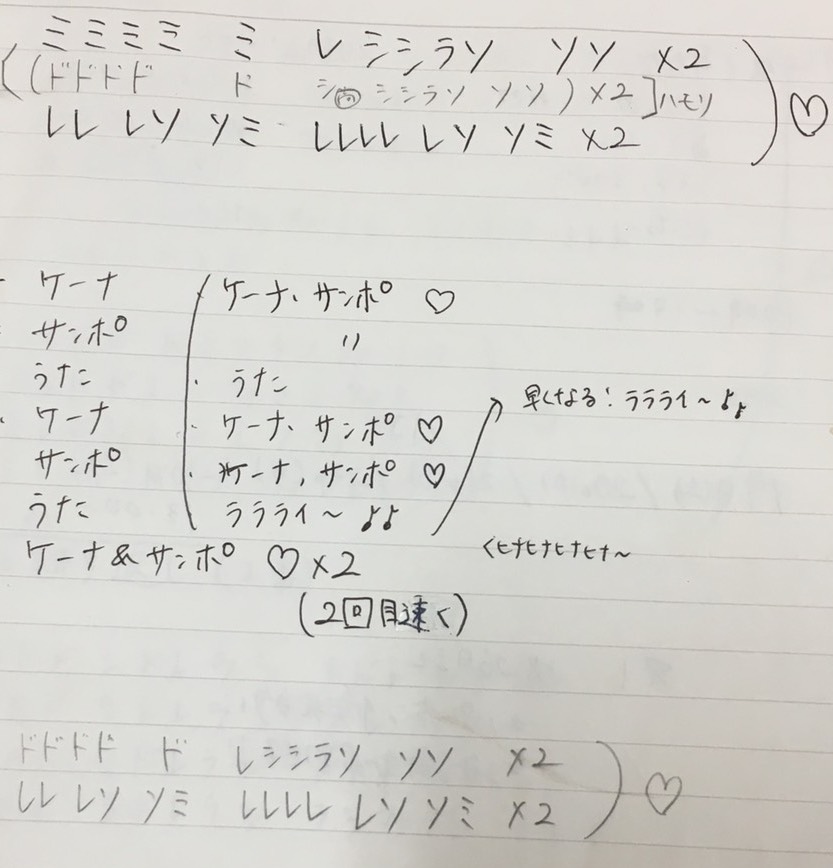 ミミミミ ミ レシシラソ ソソ ×2
((ドドドド ド シ シシラソ ソソ)×2]ハモリ
レレ レソ ソミ レレレレ レソ ソミ ×2 ) ♡
ケーナ
サンポ
うた
ケーナ
サンポ
うた
ケーナ、サンポ ♡
〃
・うた
・ケーナ、サンポ ♡
・ケーナ、サンポ ♡
ラララライ〜♪♪
早くなる! ララライ〜♪♪
くヒナヒナヒナヒナ〜
ケーナ&サンポ ♡×2
(2回目速く)
ドドドド ド レシシラソ ソソ ×2
レレ レソ ソミ レレレレ レソ ソミ ×2 ) ♡